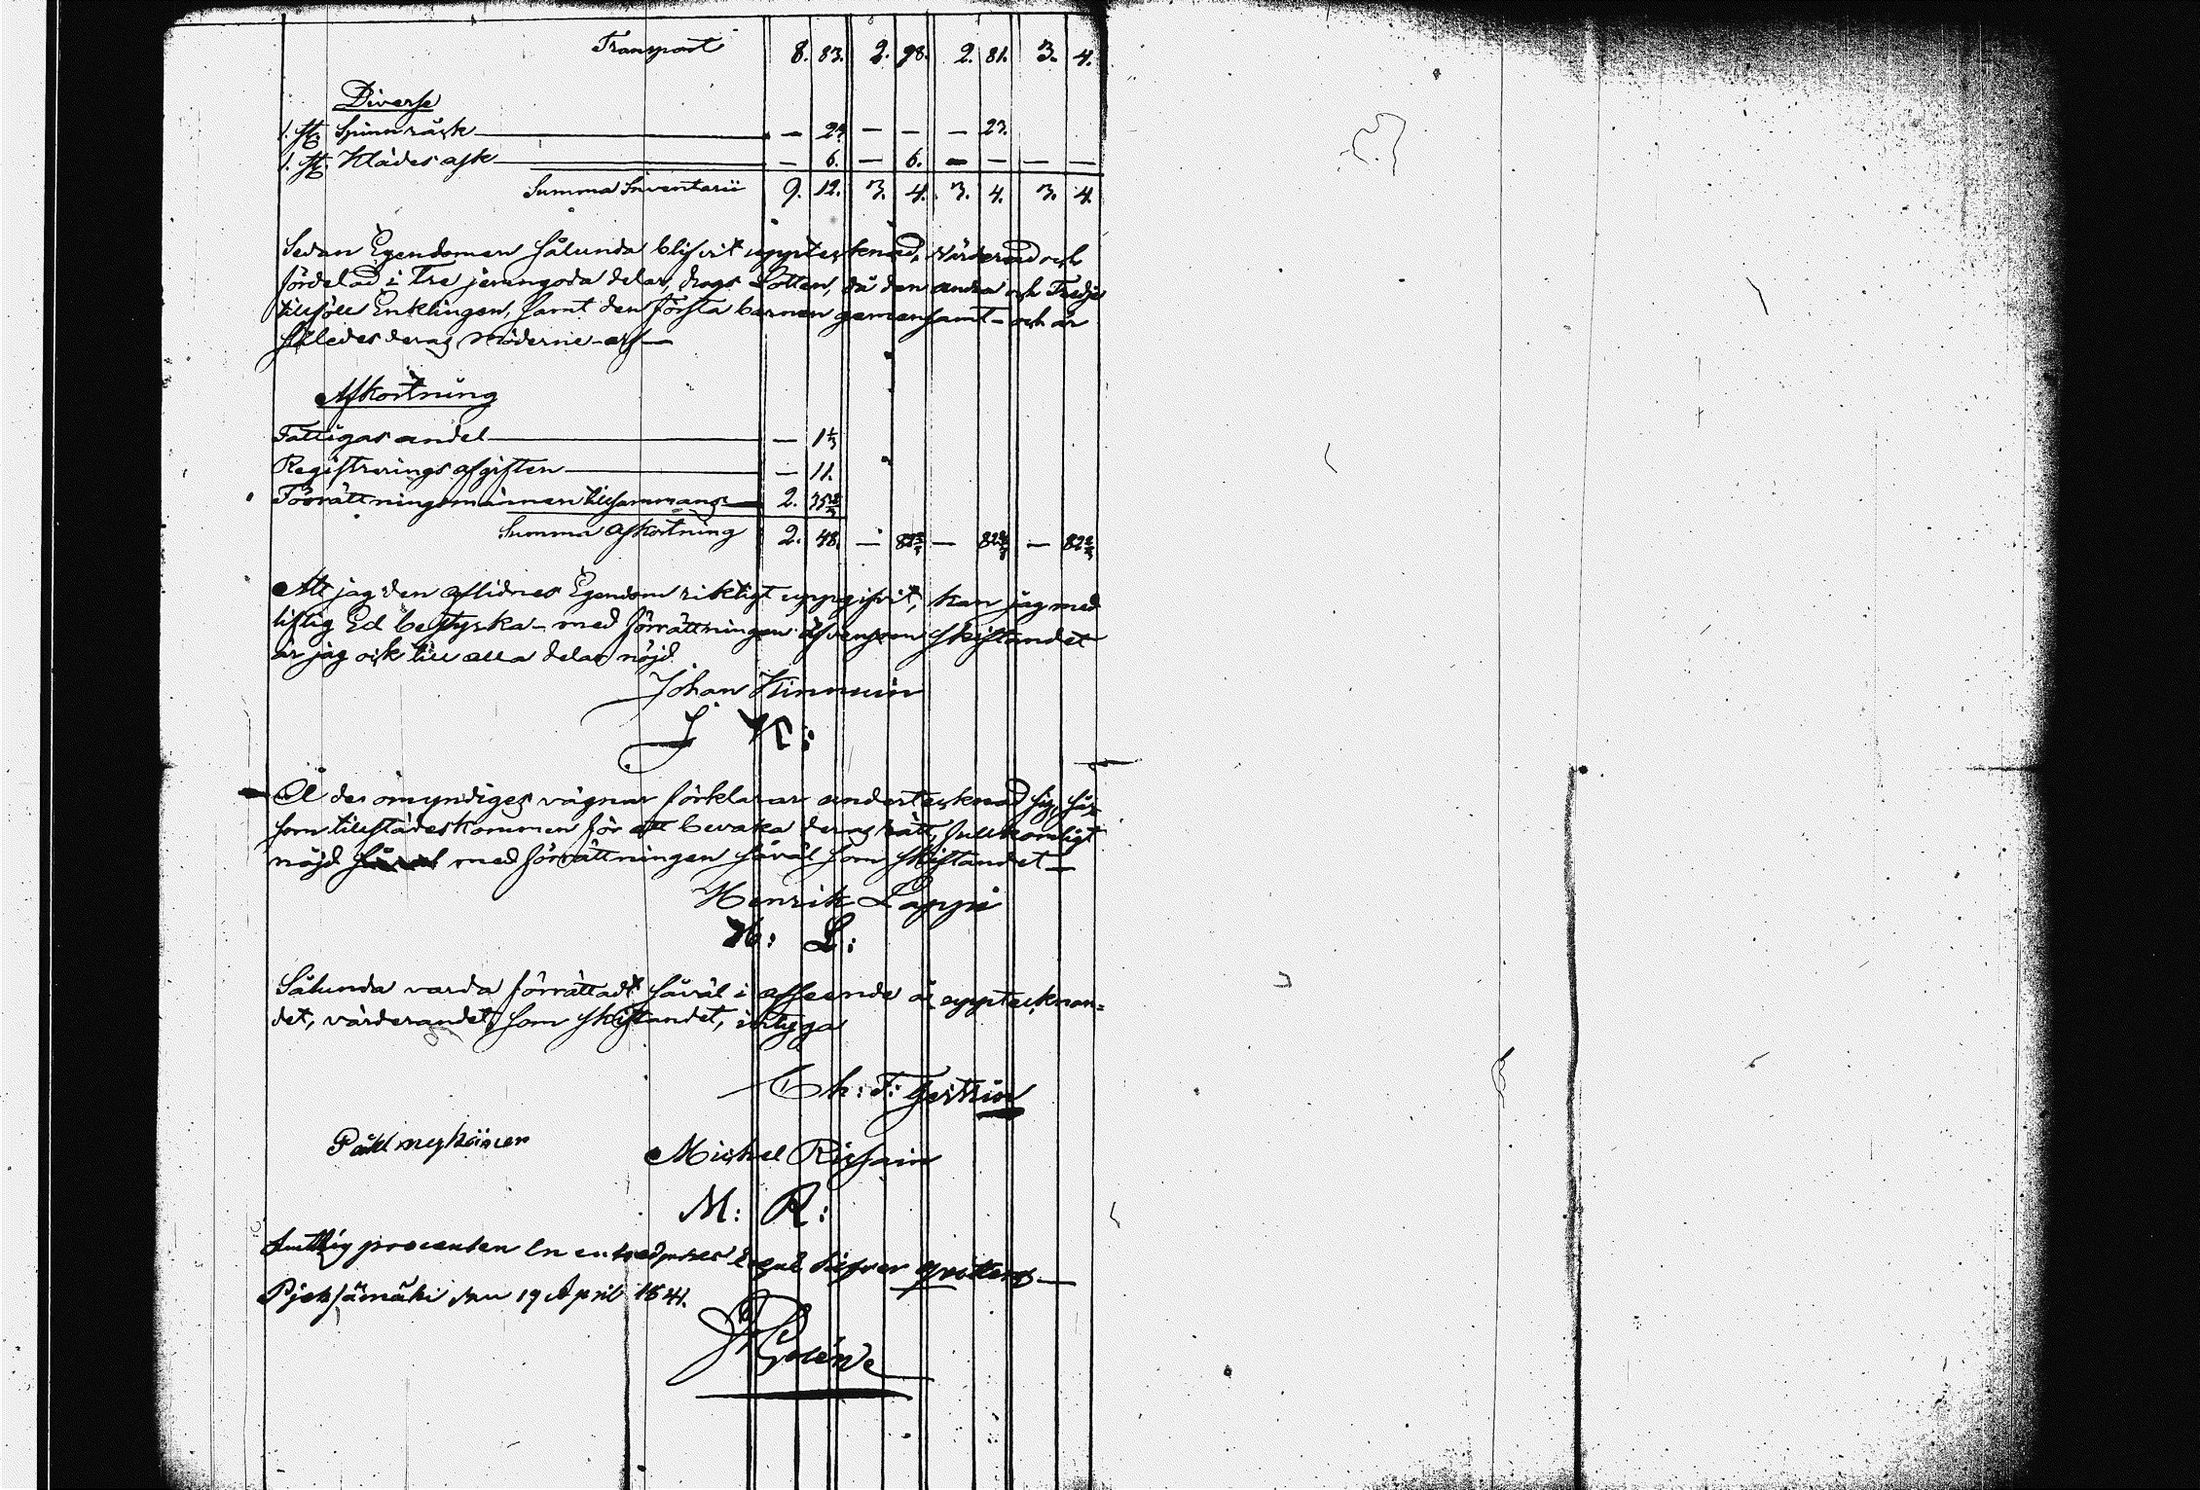 Transport 8. 83. 2. 98. 2. 81. 3. 4.
Diverse
1. st. Spinnråck — 23. — — — 23.
1. st. Klädes ask — 6. — 6. — — — —
Summa Inventarii 9. 12. 3. 4. 3. 4. 3. 4.
Sedan Egendomen sålunda blifvit uppteknad, värderad och
fördelad i Tre jemngoda delar, drogs Lotten, då den andra och Tredje
tillföll Enklingen, samt den första barnen gemensamt – och är
således deras Möderne-arf —
Afkortning
Fattigas andel — 1 1/3
Registrerings afgiften — 11.
Förrättningsmännen tillsammans — 2. 35 2/3
Summa Afkortning 2. 48. — 82 2/3 — 82 2/3 — 82 2/3
Att jag den aflidnes Egendom riktigt uppgifvit, kan jag med
liflig Ed bestyrka – med förrättningen äfvensom skiftandet
är jag ock till alla delar nöjd.
Johan Kinnuin
J K:
Å de omyndiges vägnar förklarar undertecknad sig, så
som tillstädeskommen för att bevaka deras rätt, fullkomligt
nöjd med förrättningen såväl som skiftandet —
Henrik Lappi
H: L:
Sålunda varda förrättadt såväl i afseende å upptecknan=
det, värderandet, som skiftandet, intyga
Ch: F:
Påhl nykäinen
Michel
M: R:
procenten en en silfver qvitteras —
Pjeksämäki den 19 April 1841.